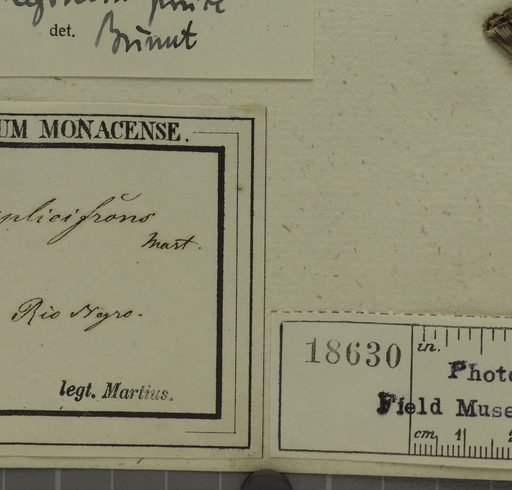 det. Burret
UM MONACENSE.
plicifrons
Mart.
Rio Negro.
legt. Martius.
18630
in.
Photo
Field Muse
cm 1 2